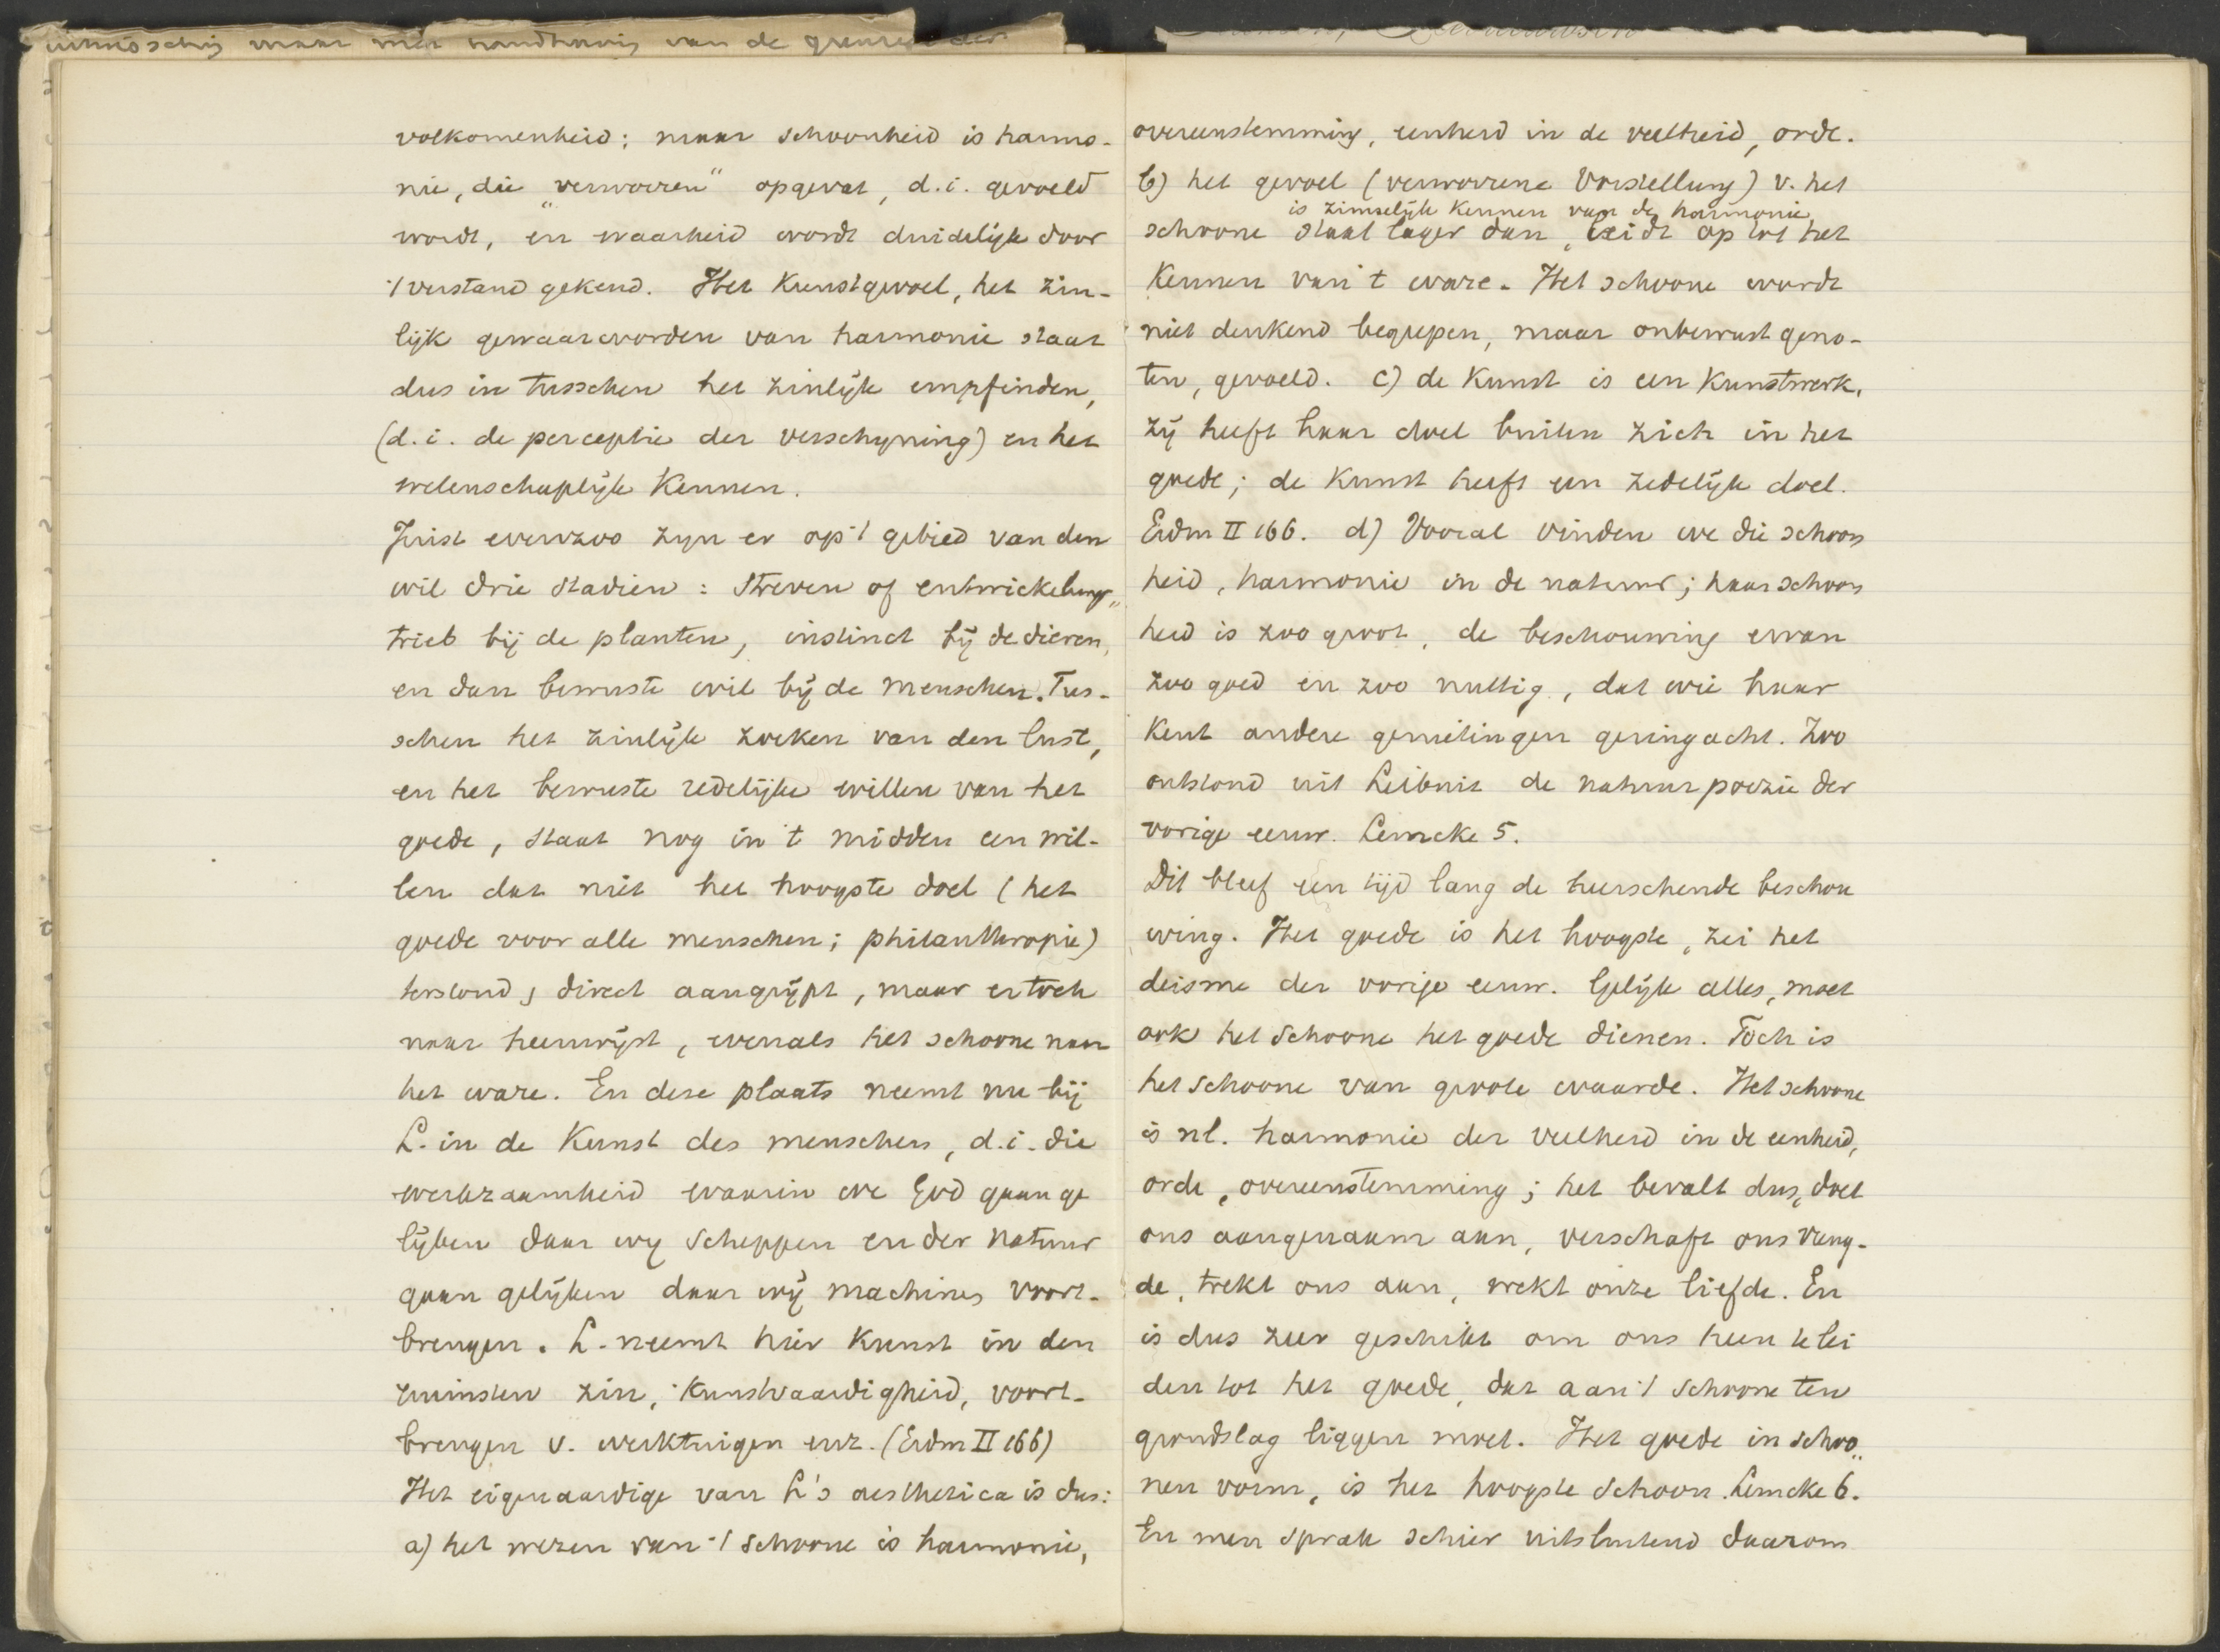 maar met handhaving van de grenzen der
volkomenheid; maar schoonheid is harmo-
nie, die „verworren" opgevat, d.i. gevoeld
wordt, en waarheid wordt duidelijk door
't verstand gekend. Het Kunstgevoel, het zin-
lijk gewaarworden van harmonie staat
dus in tusschen het zinlijk empfinden,
(d.i. de perceptie der verschyning) en het
wetenschaplijk Kennen.
Juist evenzoo zyn er op 't gebied van den
wil drie stadien: Streven of entwickelungs„
trieb bij de planten, instinct bij de dieren,
en dan bewuste wil bij de menschen. Tus-
schen het zinlijk zoeken van den lust,
en het bewuste redelijke willen van het
goede, staat nog in 't midden een wil-
len dat niet het hoogste doel (het
goede voor alle menschen; philanthropie)
terstond, direct aangrijpt, maar er toch
naar heenwijst, evenals het schoone naar
het ware. En deze plaats neemt nu bij
L. in de Kunst des menschen, d.i. die
werkzaamheid waarin we God gaan ge
lijken daar wy Scheppen en der Natuur
gaan gelijken daar wij machines voort-
brengen. L. neemt hier Kunst in den
ruimsten zin, Kunstvaardigheid, voort-
brengen v. werktuigen enz. (Erdm II 166)
Het eigenaardige van L's aesthetica is dus:
a) het wezen van 't schoone is harmonie,
overeenstemming, eenheid in de veelheid, orde.
b) het gevoel (verworrene Vorstellung) v. het
is zinnelijk Kennen van de harmonie,
schoone staat lager dan, leidt op tot het
Kennen van 't ware. Het schoone wordt
niet denkend begrepen, maar onbewust geno-
ten, gevoeld. c) de Kunst is een Kunstwerk,
zij heeft haar doel buiten zich in het
goede; de Kunst heeft een zedelijk doel.
Erdm II 166. d) Vooral vinden we die schoon
heid, harmonie in de natuur; haar schoon
heid is zoo groot, de beschouwing ervan
zoo goed en zoo nuttig, dat wie haar
Kent andere genietingen gering acht. Zoo
ontstond uit Leibnitz de natuurpoezie der
vorige eeuw. Lemcke 5.
Dit bleef een tijd lang de heerschende beschou
wing. Het goede is het hoogste, zei het
deisme der vorige eeuw. Gelijk alles, moet
ook het Schoone het goede dienen. Toch is
het schoone van groote waarde. Het schoone
is nl. harmonie der veelheid in de eenheid,
orde, overeenstemming; het bevalt dus, doet
ons aangenaam aan, verschaft ons vreug-
de, trekt ons aan, wekt onze liefde. En
is dus zeer geschikt om ons heen te lei
den tot het goede, dat aan 't schoone ten
grondslag liggen moet. Het goede in schoo„
nen vorm, is het hoogste schoon. Lemcke 6.
En men sprak schier uitsluitend daarom